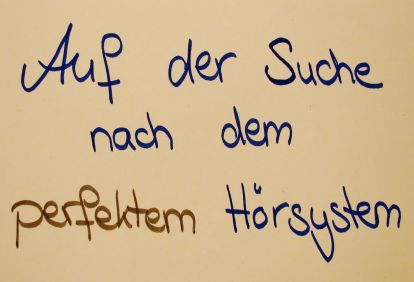 Auf der Suche
nach dem
perfektem Hörsystem